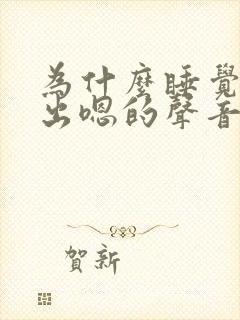 為什麼睡覺
出嗯的聲音
賀新